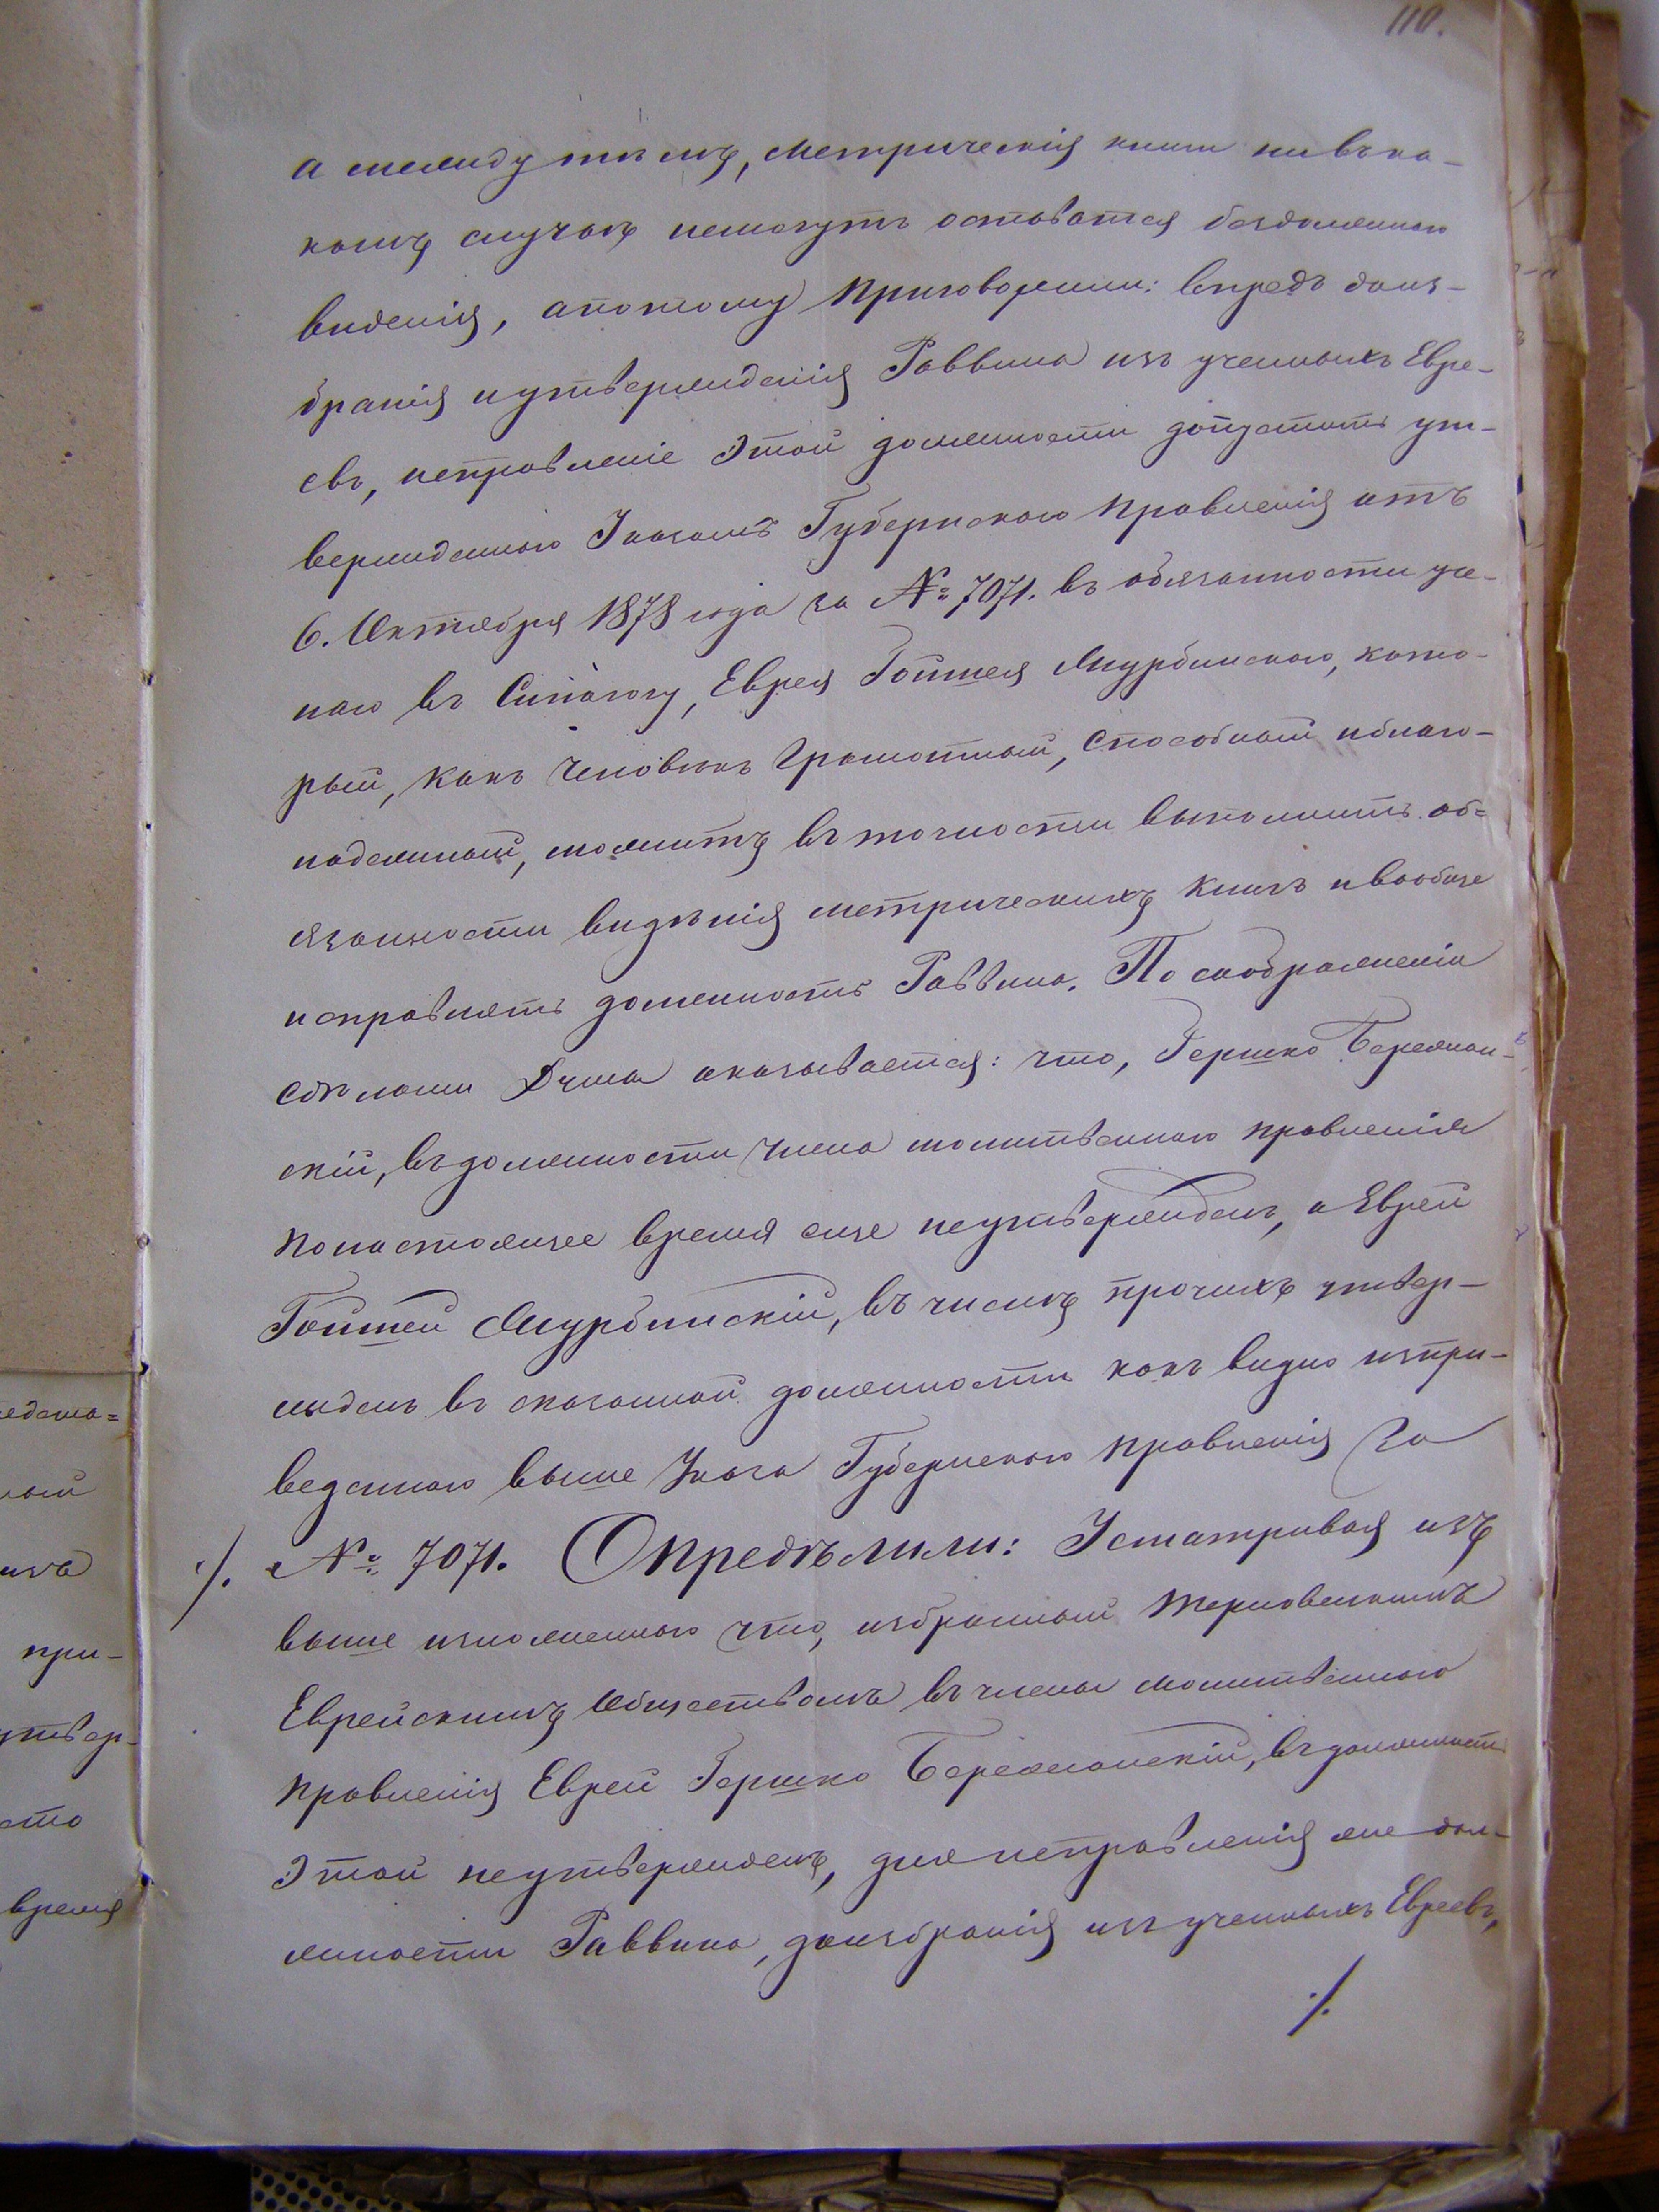 110.
а между тѣмъ, метрическія книги нивъка-
комъ случаѣ немогутъ оставатся бездолжнаго
виденія, апотому приговорили: впредь доиз-
бранія иутвержденія Раввина изъ ученыхъ Евре-
евъ, исправленіе этой должности допустить ут-
вержденнаго Указомъ Губернскаго Правленія отъ
6. Октября 1878 года за № 7071. въ обязанности уче-
наго въ Синагогу, Еврея Гойшея Мурбинскаго, кото-
рый, какъ человѣкъ грамотный, способный иблаго-
надежный, можитъ въ точности выполнить об=
язанности видѣнія метрическихъ книгъ ивообще
исправлять должность Раввина. По соображеніи
сдѣлами Думы оказывается: что, Гершко Бережан-
скій, въдолжности члена молитвеннаго правленія
понастоящее время еще неутвержденъ, а Еврей
Гойшей Мурбинскій, въ числѣ прочихъ утвер-
жденъ въ сказанной должности какъ видно изпри-
веденнаго выше Указа Губернскаго Правленія за
№ 7071. Опредѣлили: Усматривая изъ
выше изложеннаго что, избранный Терновскимъ
Еврейскимъ Обществомъ въ члены молитвеннаго
правленія Еврей Гершко Бережанскій, въдолжности
этой неутвержденъ, для исправленія же дол-
жности Раввина, доизбранія изъ ученыхъ Евреевъ,
едста=
ный
изъ
при-
утвер-
сто
время